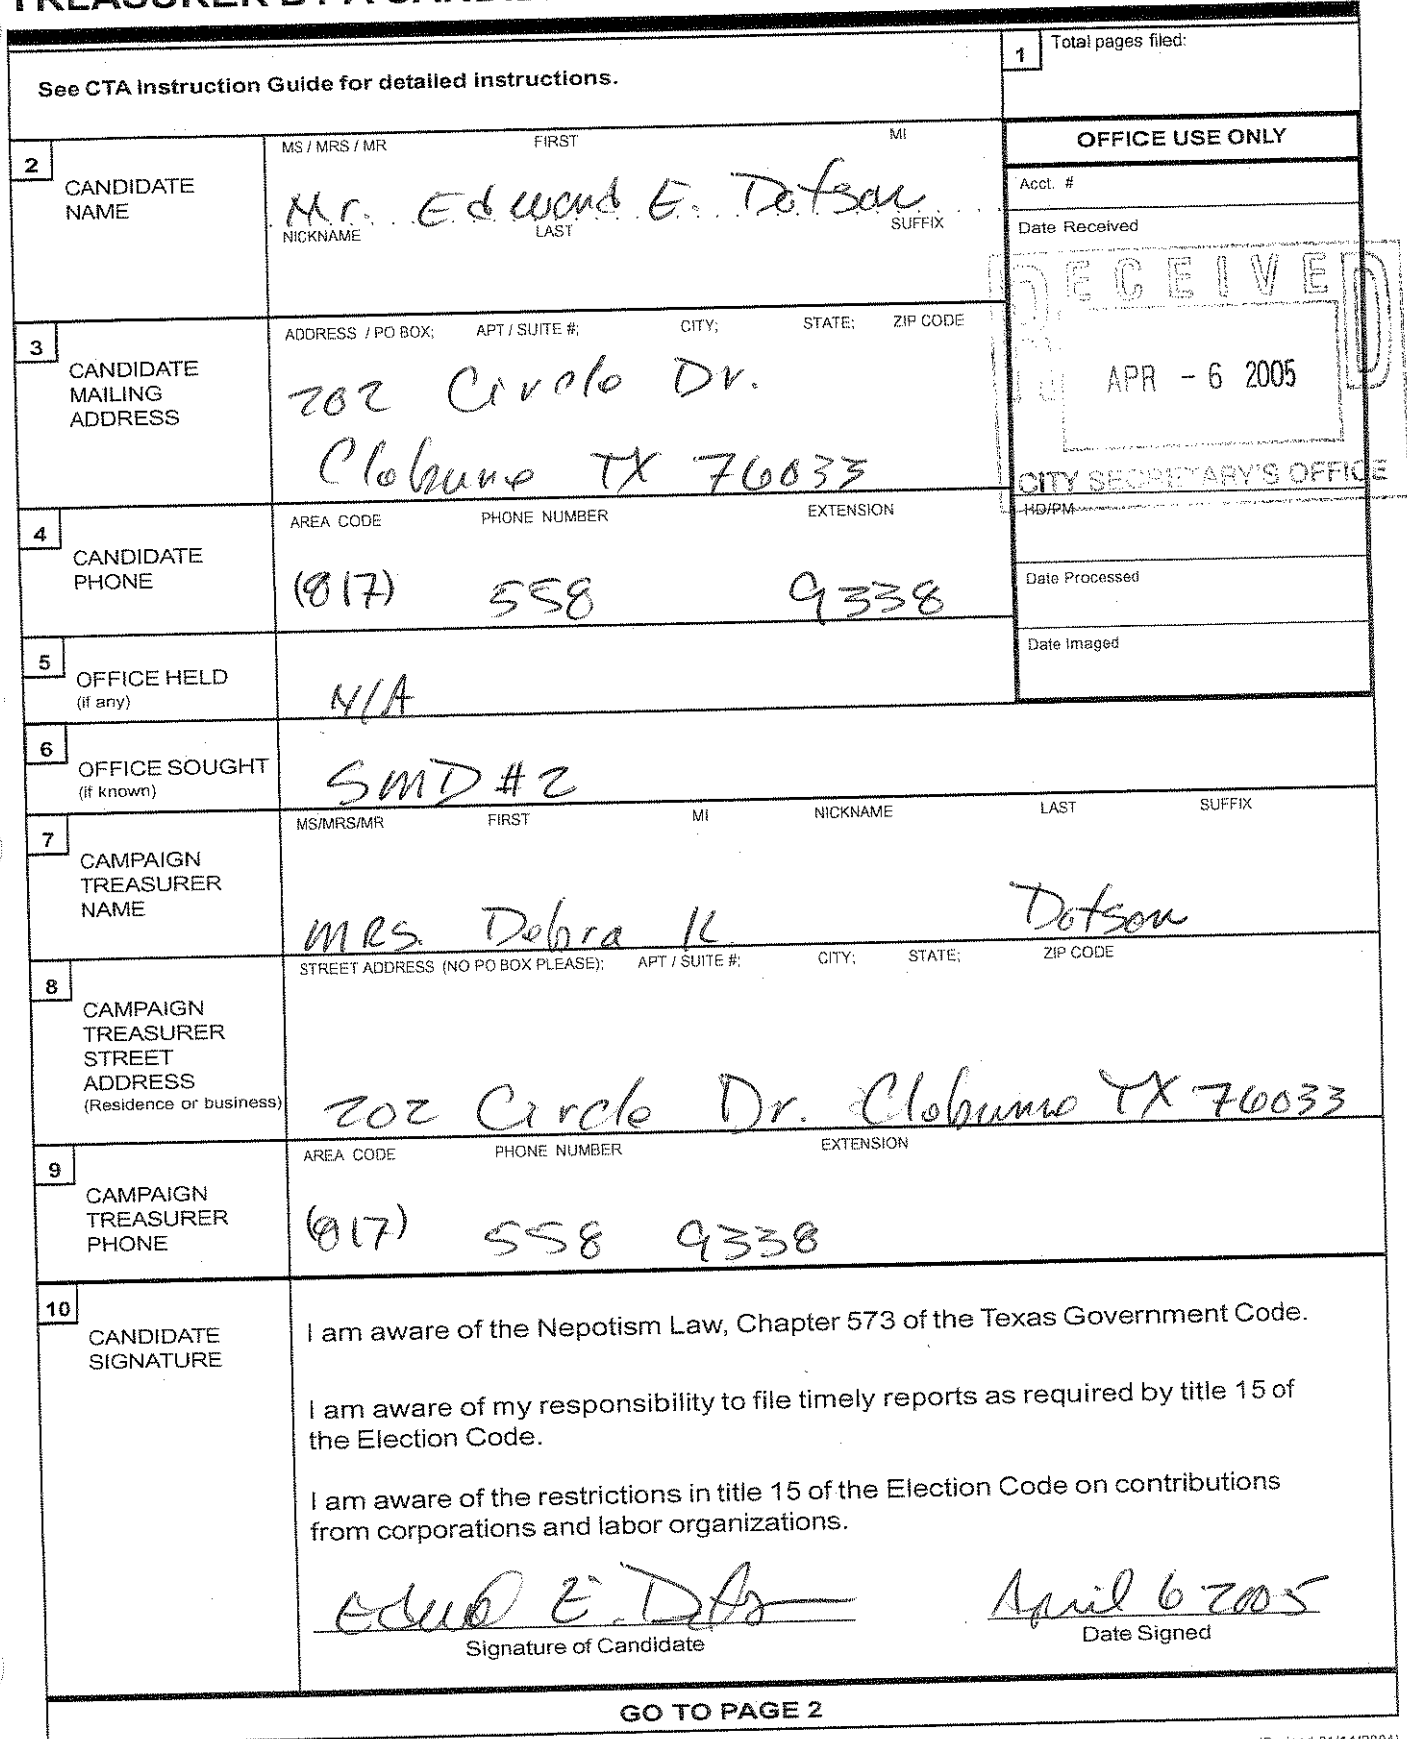 See CTA Instruction Guide for detailed instructions.
1 Total pages filed:
OFFICE USE ONLY
Acct. #
Date Received
RECEIVED
APR - 6 2005
CITY SECRETARY'S OFFICE
HD/PM
Date Processed
Date Imaged
2 CANDIDATE NAME
MS / MRS / MR FIRST MI
Mr. Edward E. Dotson
NICKNAME LAST SUFFIX
3 CANDIDATE MAILING ADDRESS
ADDRESS / PO BOX; APT / SUITE #; CITY; STATE; ZIP CODE
202 Circle Dr.
Cleburne TX 76033
4 CANDIDATE PHONE
AREA CODE PHONE NUMBER EXTENSION
(817) 558 9338
5 OFFICE HELD (if any)
N/A
6 OFFICE SOUGHT (if known)
SMD #2
7 CAMPAIGN TREASURER NAME
MS/MRS/MR FIRST MI NICKNAME LAST SUFFIX
MRS. Debra K Dotson
8 CAMPAIGN TREASURER STREET ADDRESS (Residence or business)
STREET ADDRESS (NO PO BOX PLEASE); APT / SUITE #; CITY; STATE; ZIP CODE
202 Circle Dr. Cleburne TX 76033
9 CAMPAIGN TREASURER PHONE
AREA CODE PHONE NUMBER EXTENSION
(817) 558 9338
10 CANDIDATE SIGNATURE
I am aware of the Nepotism Law, Chapter 573 of the Texas Government Code.
I am aware of my responsibility to file timely reports as required by title 15 of
the Election Code.
I am aware of the restrictions in title 15 of the Election Code on contributions
from corporations and labor organizations.
Edward E. Dotson April 6 2005
Signature of Candidate Date Signed
GO TO PAGE 2